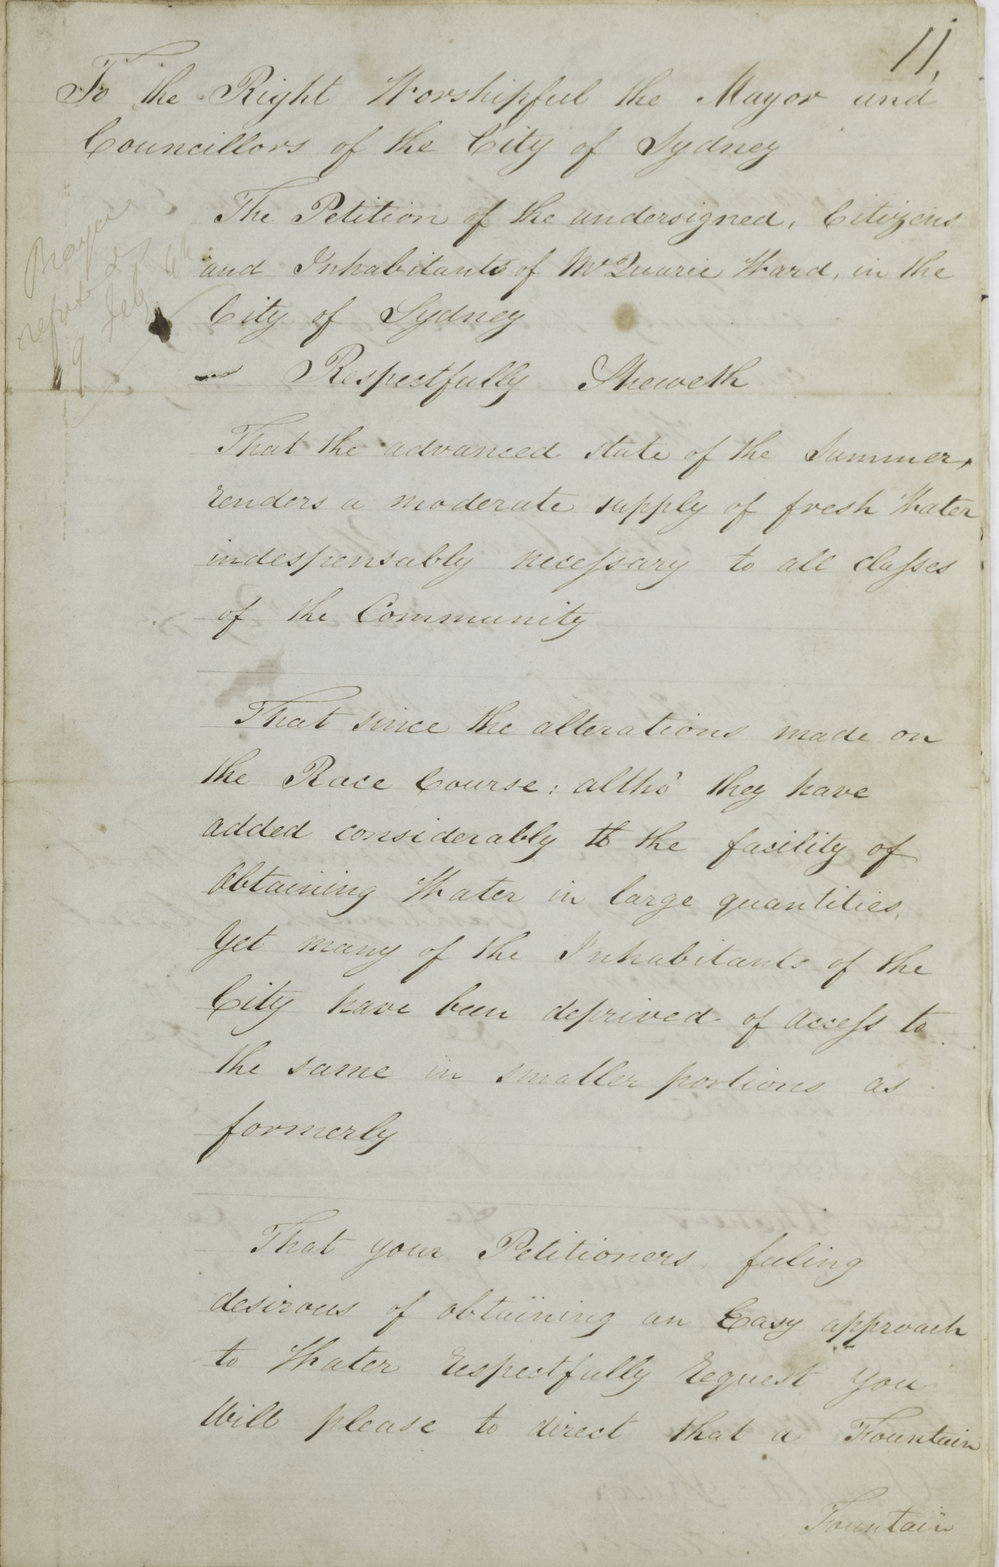 11,
To the Right Worshipful the Mayor and
Councillors of the City of Sydney
The Petition of the undersigned, Citizens
and Inhabitants of McQuarie Ward, in the
City of Sydney
Respectfully Sheweth
Prayer
refused
9 Feby
That the advanced state of the Summer,
renders a moderate supply of fresh Water
indespensably necessary to all classes
of the Community
That since the alterations made on
the Race Course: altho' they have
added considerably to the facility of
Obtaining Water in large quantities,
Yet many of the Inhabitants of the
City have been deprived of access to
the same in smaller portions as
formerly
That your Petitioners feeling
desirous of obtaining an Easy approach
to Water respectfully request You
Will please to direct that a Fountain
Fountain